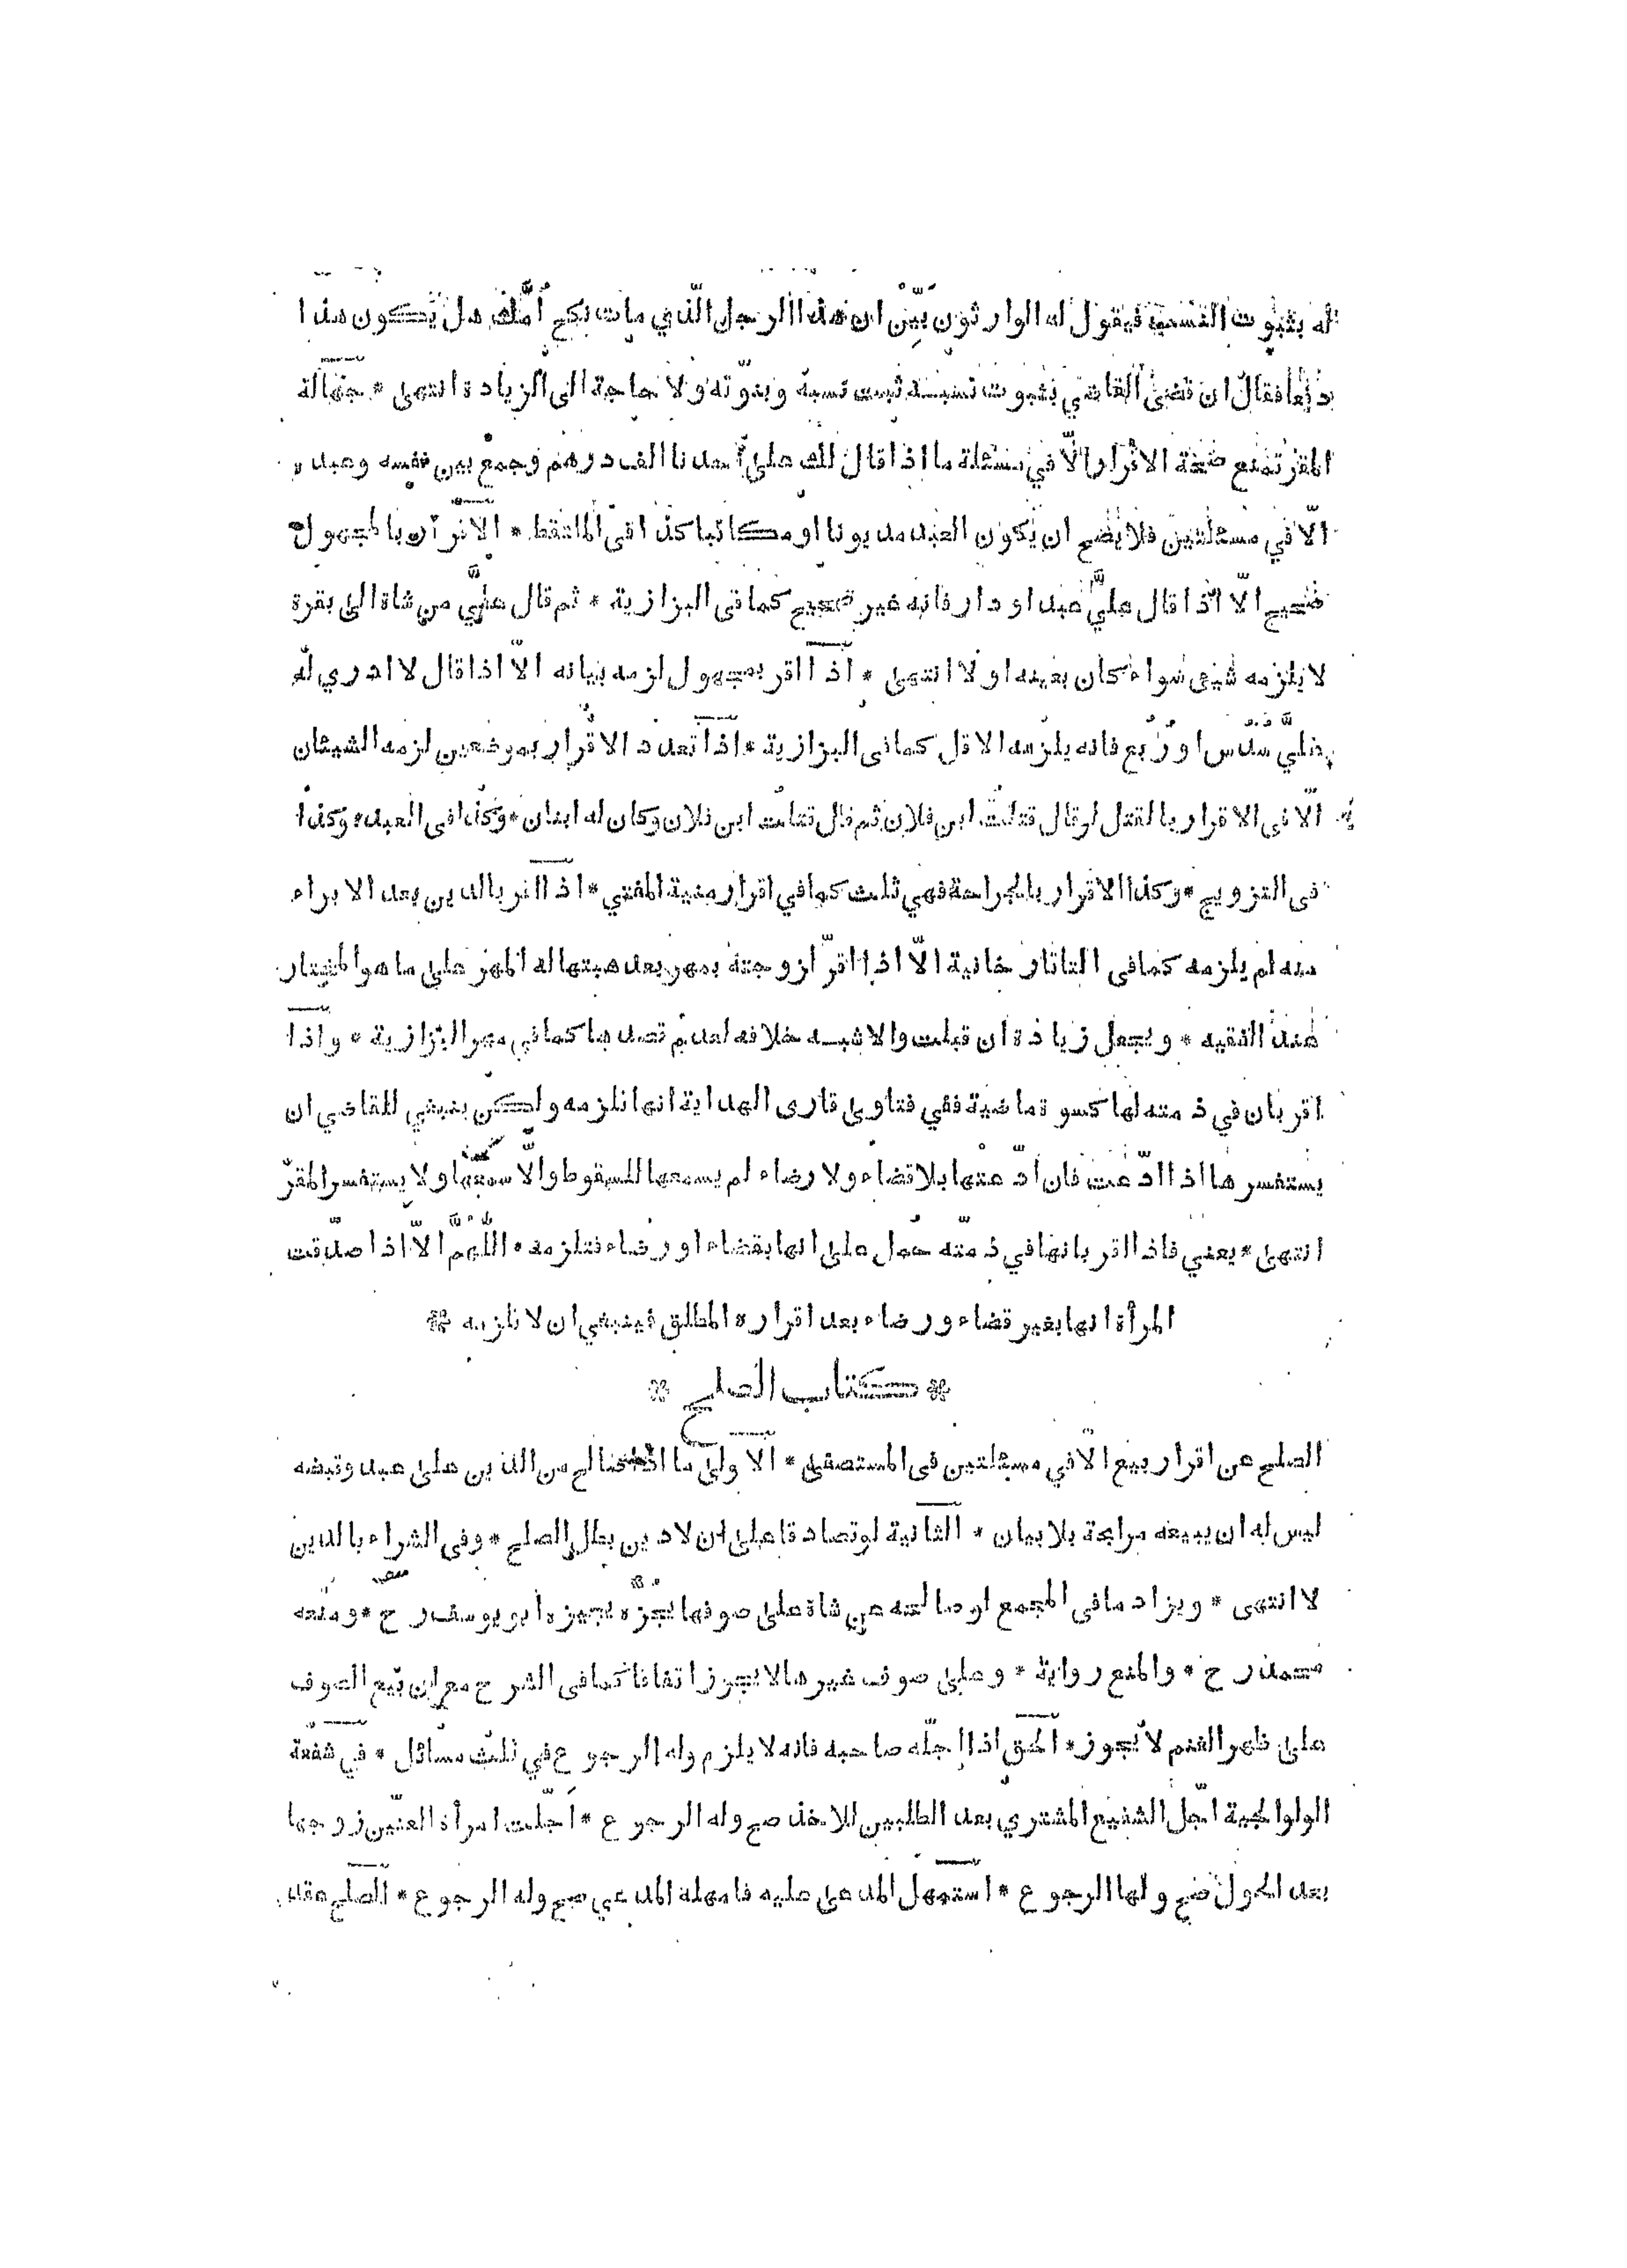 له بثبوت النسب فيقول له الوارثون بَيِّنْ ان هذا الرجل الّذي مات نكح اُمَّك هل يكون هذا
دفعا فقال ان قضى القاضي بثبوت نسبه ثبت نسبه وبنوّته ولا حاجة الى الزيادة انتهى * جهالة
المقر تمنع صحة الاقرار الّا في مسئلة ما اذا قال لك على احدنا الف درهم وجمع بين نفسه وعبده
الّا في مسئلتين فلا يصح ان يكون العبد مديونا او مكاتبا كذا فى الملتقط * الاقرار بالمجهول
صحيح الّا اذا قال عليَّ عبد او دار فانه غير صحيح كما فى البزازية * ثم قال عليَّ من شاة الى بقرة
لا يلزمه شيئ سواء كان بعينه او لا انتهى * اذا اقر بمجهول لزمه بيانه الّا اذا قال لا ادري له
عليَّ سُدُس او رُبُع فانه يلزمه الاقل كما فى البزازية * اذا تعدد الاقرار بموضعين لزمه الشيئان
الّا فى الاقرار بالقتل لو قال قتلتُ ابن فلان ثم قال قتلتُ ابن فلان وكان له ابنان * وكذا فى العبد * وكذا
فى التزويج * وكذا الاقرار بالجراحة فهي ثلث كما في اقرار منية المفتي * اذا اقر بالدين بعد الابراء
منه لم يلزمه كما فى التاتارخانية الّا اذا اقرّ لزوجته بمهر بعد هبتها له المهر على ما هو المختار
عند الفقيه * ويجعل زيادة ان قبلت والاشبه خلافه لعدم قصدها كما في مهر البزازية * واذا
اقر بان في ذمته لها كسوة ماضية ففي فتاوى قارى الهداية انها تلزمه ولكن ينبغي للقاضي ان
يستفسرها اذا ادّعت فان ادّعتها بلا قضاء ولا رضاء لم يسمعها للسقوط والّا سمعها ولا يستفسر المقرّ
انتهى * يعني فاذا اقر بانها في ذمّته حُمل على انها بقضاء او رضاء فتلزمه * اللّٰهُمَّ الّا اذا صدّقت
المرأة انها بغير قضاء ورضاء بعد اقراره المطلق فينبغي ان لا تلزمه *
* كتاب الصلح *
الصلح عن اقرار بيع الّا في مسئلتين فى المستصفى * الاولى ما اذا صالح من الدين على عبد وقبضه
ليس له ان يبيعه مرابحة بلا بيان * الثانية لو تصادقا على ان لا دين بطل الصلح * وفى الشراء بالدين
لا انتهى * ويزاد ما فى المجمع لو صالحه عن شاة على صوفها يجُزُّه يجيزه ابو يوسف رح * ومنعه
محمد رح * والمنع رواية * وعلى صوف غيرها لا يجوز اتفاقا كما فى الشرح مع ان بيع الصوف
على ظهر الغنم لا يجوز * الحق اذا اجلّه صاحبه فانه لا يلزم وله الرجوع في ثلث مسائل * في شفعة
الولوالجية اجّل الشفيع المشتري بعد الطلبين للاخذ صح وله الرجوع * اَجّلت امرأة العنّين زوجها
بعد الحول صح ولها الرجوع * استمهل المدعى عليه فامهله المدعي صح وله الرجوع * الصلح عقد